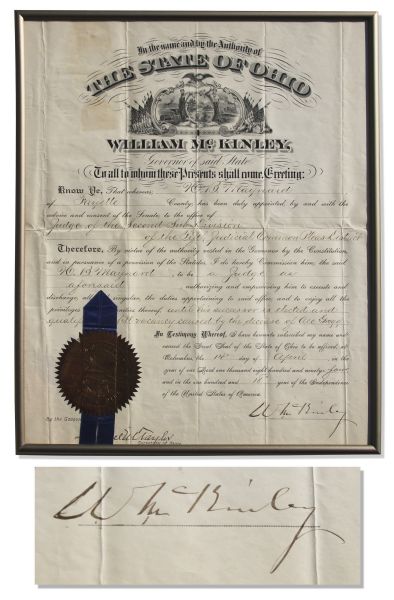 In the name and by the Authority of
THE STATE OF OHIO
WILLIAM McKINLEY,
Governor of said State
To all to whom these Presents shall come, Greeting:
Know Ye, That whereas, H. B. Maynard
of Fayette County, has been duly appointed by and with the
advice and consent of the Senate to the office of
Judge of the Second Sub-division
of the Judicial Common Pleas District
Therefore, By virtue of the authority vested in the Governor by the Constitution,
and in pursuance of a provision of the Statutes, I do hereby Commission him, the said
H. B. Maynard to be a Judge as
aforesaid authorizing and empowering him to execute and
discharge, all and singular, the duties appertaining to said office, and to enjoy all the
privileges and immunities thereof, until his successor is elected and
qualified vacancy caused by the decease of
In Testimony Whereof, I have hereunto subscribed my name and
caused the Great Seal of the State of Ohio to be affixed, at
Columbus, the 14th day of April, in the
year of our Lord one thousand eight hundred and ninety-four
and in the one hundred and 18 year of the Independence
of the United States of America.
W McKinley
By the Governor
Secretary of State
W McKinley